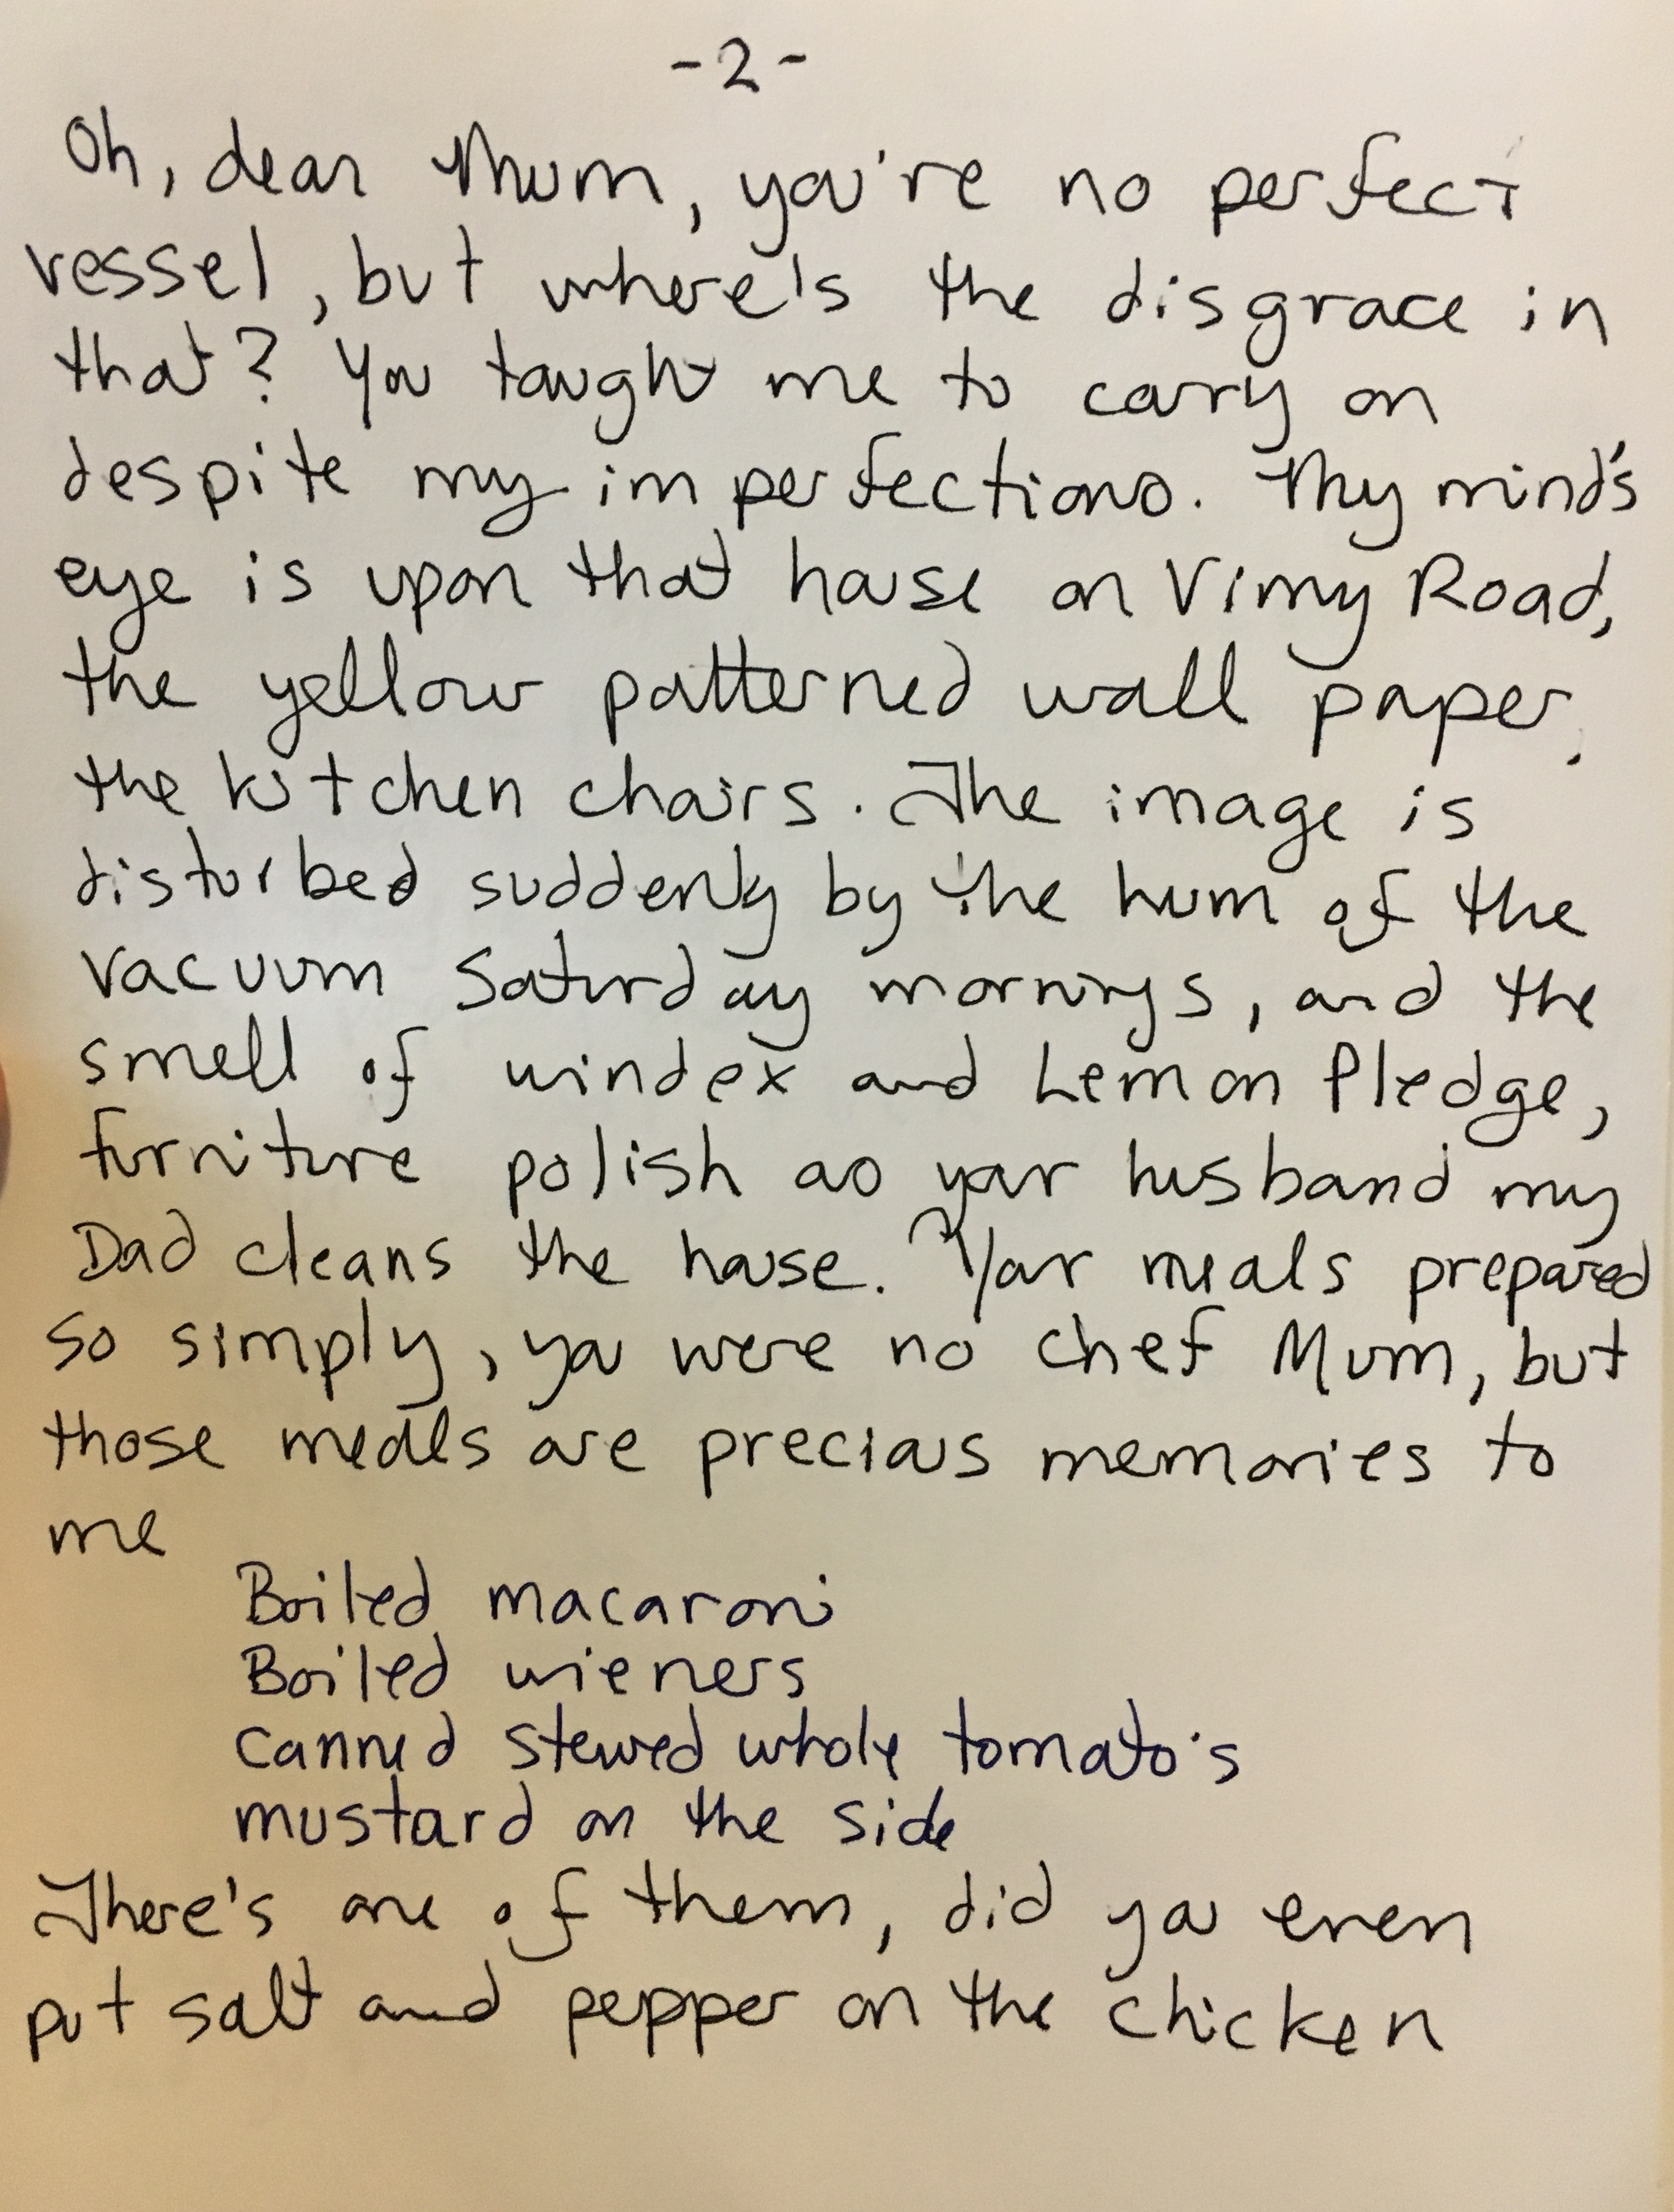 -2-
Oh, dear Mum, you're no perfect
vessel, but where's the disgrace in
that? You taught me to carry on
despite my imperfections. My mind's
eye is upon that house on Vimy Road,
the yellow patterned wall paper,
the kitchen chairs. The image is
disturbed suddenly by the hum of the
vacuum Saturday mornings, and the
smell of windex and Lemon Pledge,
furniture polish as your husband my
Dad cleans the house. Your meals prepared
so simply, you were no chef Mum, but
those meals are precious memories to
me
Boiled macaroni
Boiled wieners
Canned stewed whole tomato's
mustard on the side
There's one of them, did you even
put salt and pepper on the chicken